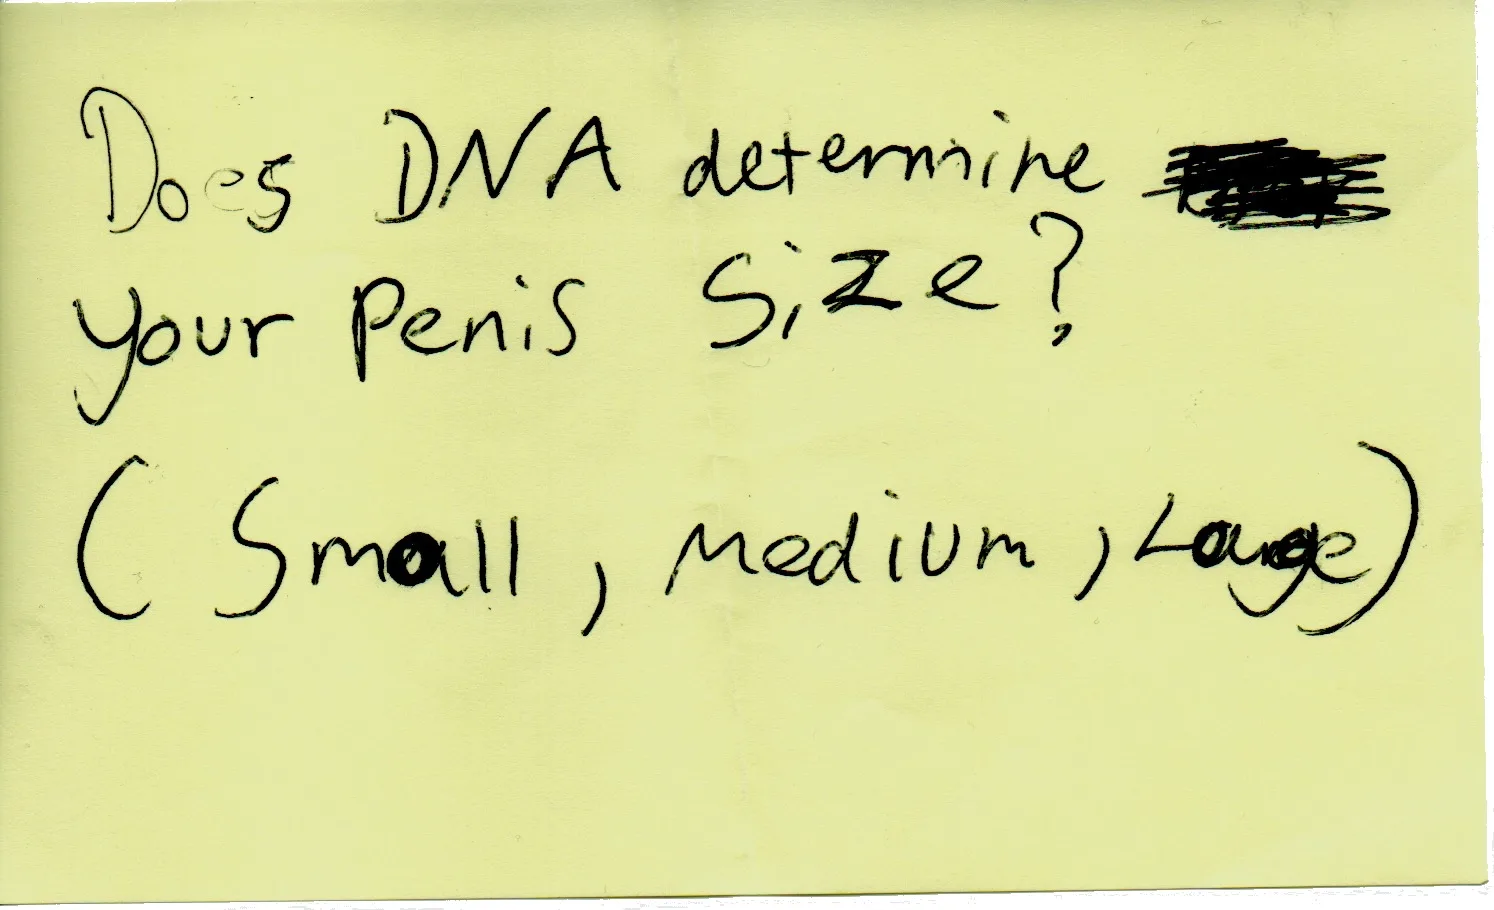 Does DNA determine
your penis size?
(Small, Medium, Large)